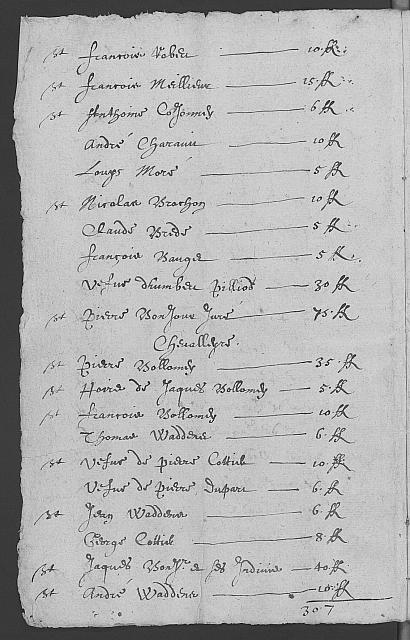 pt françois Rober 10 ff
pt françois Meillieur 15 ff
pt Anthoine Colomey 6 ff
André Charain 10 ff
Louys Moré 5 ff
pt Nicolas Brochon 10 ff
Claude Brede 5 ff
françois Bauge 5 ff
Vefue dhumber Pilliod 30 ff
pt Pierre Bonjour Juré 75 ff
Chevalleyre.
pt Pierre Vollomey 35 ff
pt Hoirs de Jaques Vollomey 5 ff
pt françois Vollomey 10 ff
Thomas Waddens 6 ff
pt Vefue de pierre Cottier 10 ff
Vefue de Pierre Dupari 6 ff
pt Jean Waddens 6 ff
George Cottier 8 ff
pt Jaques Bonjr. & ses Indivis 40 ff
pt André Waddens 10 ff
307